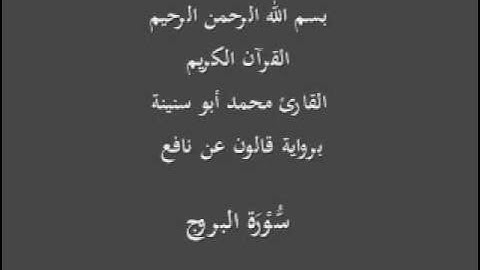 بسم الله الرحمن الرحيم
القرآن الكريم
القارئ محمد أبو سنينة
برواية قالون عن نافع
سُّوْرَة البروج